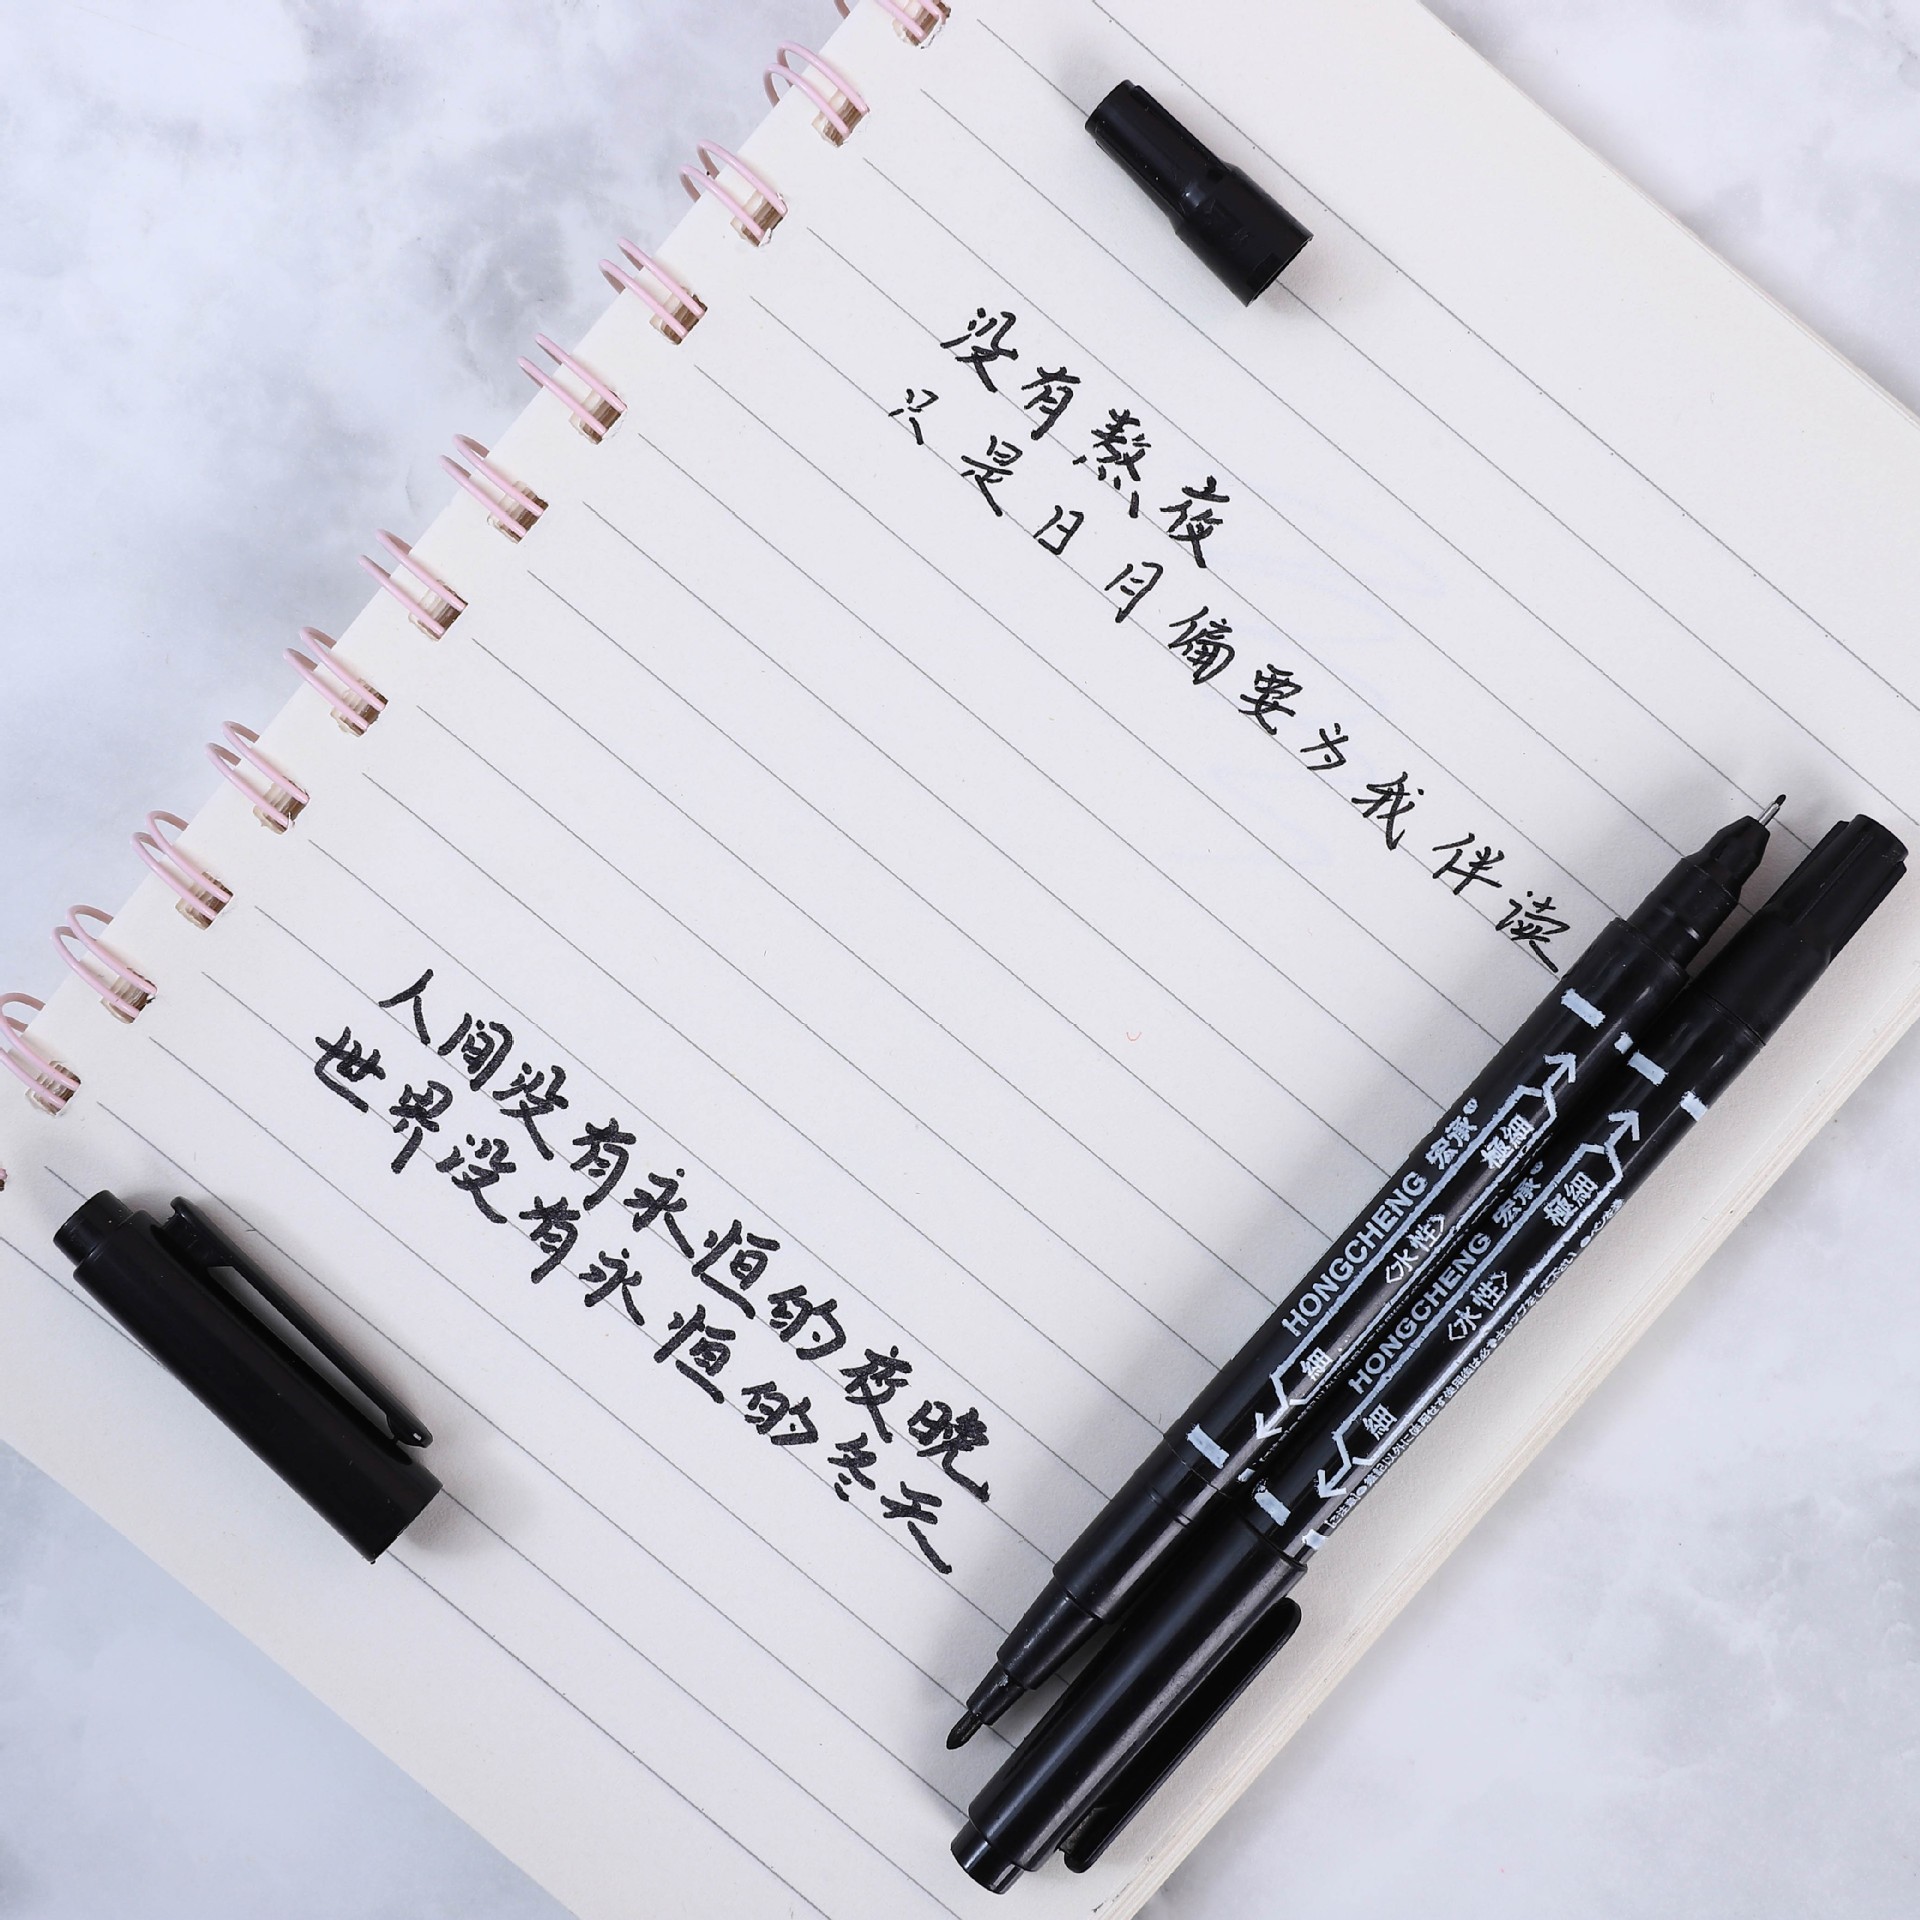 没有熬夜
只是日月偏要为我伴读
人间没有永恒的夜晚
世界没有永恒的冬天
HONGCHENG 宏承®
極細
〈水性〉
細
HONGCHENG 宏承®
極細
〈水性〉
細